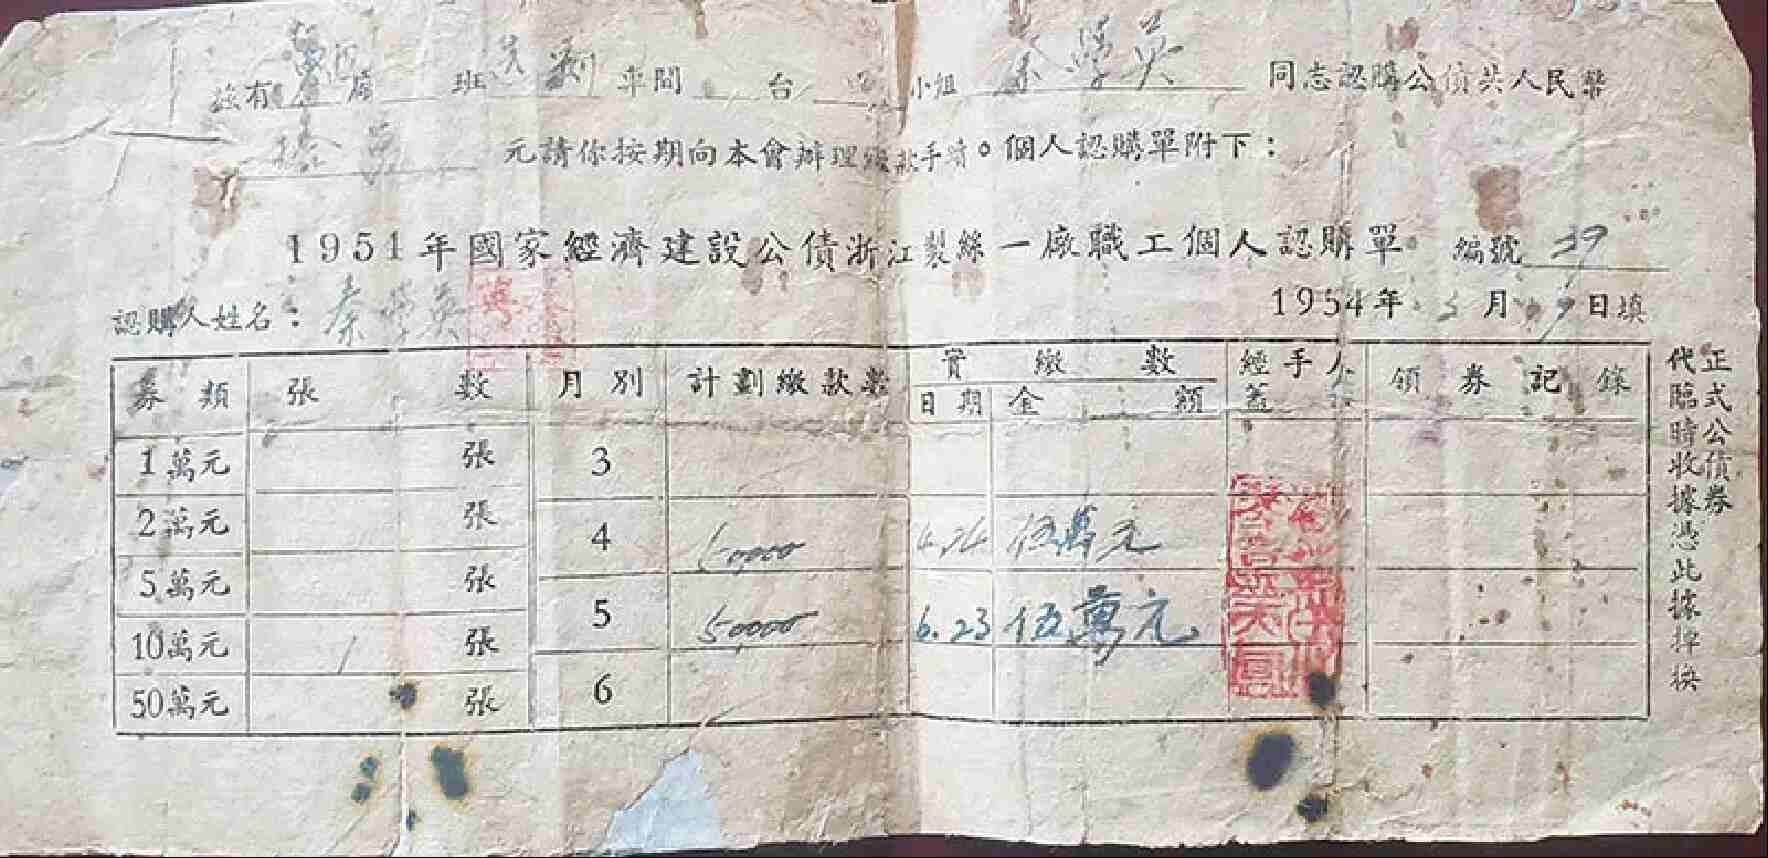 茲有 廠 班 車間 台 小組 秦學英 同志認購公債共人民幣
元請你按期向本會辦理繳款手續。個人認購單附下：
1954年國家經濟建設公債浙江製絲一廠職工個人認購單 編號 39
認購人姓名：秦學英 1954年 月 日填
券類 張數 月別 計劃繳款數 實繳數 經手人蓋 領券記錄
日期 金額
1萬元 張 3
2萬元 張 4 50000 4.24 伍萬元
5萬元 張 5 50000 6.23 伍萬元
10萬元 1 張
50萬元 張 6
正式公債券
代臨時收據憑此據掉換